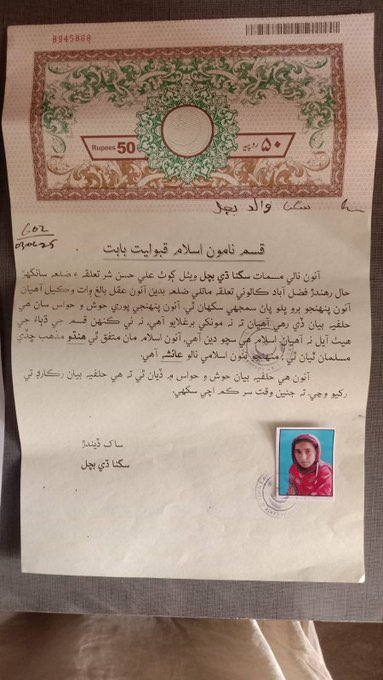 8945868
Rupees 50
۵۰ روپيه
سکنا والد بچل
602
03/06/25
قسم نامون اسلام قبوليت بابت
آئون نالي مسمات سکنا ڌي بچل ويٺل ڳوٺ علي حسن شر تعلقه ۽ ضلع سانگهڙ
حال رهندڙ فضل آباد ڪالوني تعلقه ماتلي ضلع بدين آئون عقل بالغ وات وڪيل آهيان
آئون پنهنجو برو ڀلو پاڻ سمجهي سگهان ٿي. آئون پنهنجي پوري حوش ۽ حواس سان هي
حلفيه بيان ڏئي رهي آهيان تہ نہ مونکي برغلايو آهي. نہ ئي ڪنهن قسم جي دٻاءَ جي
هيٺ آيل نہ آهيان اسلام هي سچو دين آهي، آئون اسلام مان متفق ٿي هندو مذهب ڇڏي
مسلمان ٿيان ٿي. منهنجو نئون اسلامي نالو عائشه آهي.
آئون هي حلفيه بيان حوش ۽ حواس ۾ ڏيان ٿي تہ هي حلفيہ بيان رڪارڊ تي
رکيو وڃي تہ جيئن وقت سر ڪم اچي سگهي.
ساک ڏيندڙ
سکنا ڌي بچل